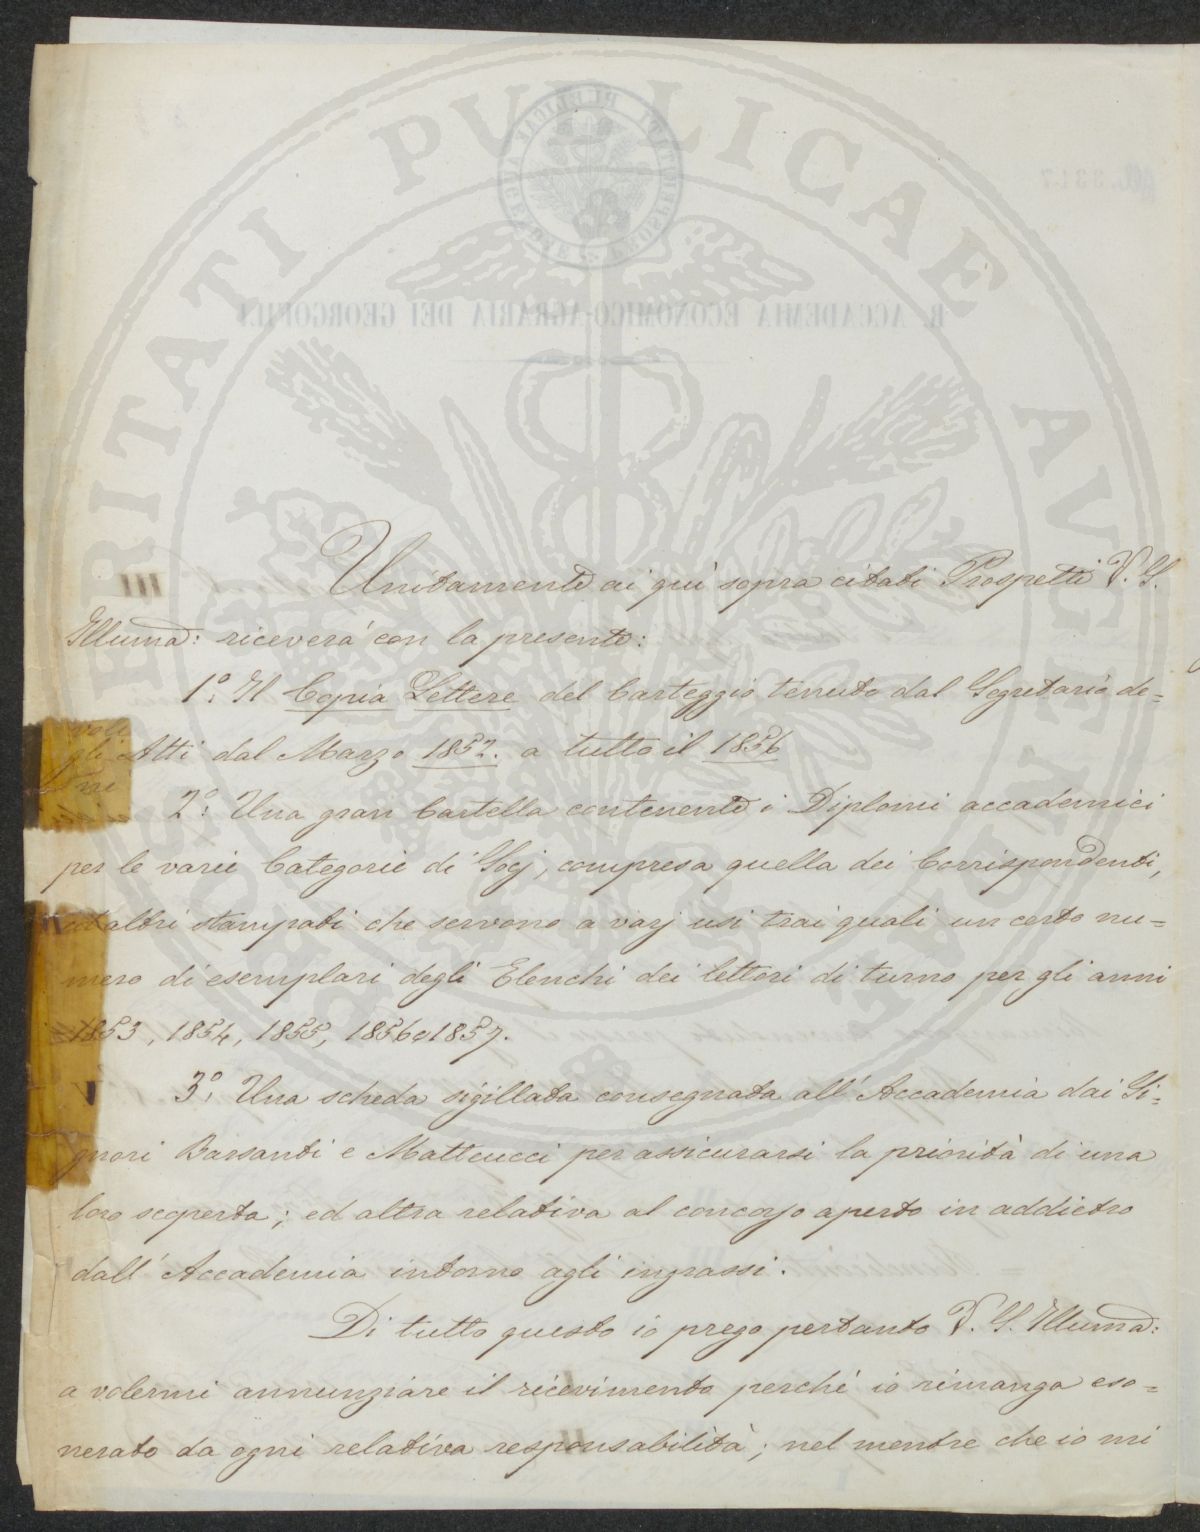 PROSPERITATI PUBLICAE AUGENDAE
R. ACCADEMIA ECONOMICO-AGRARIA DEI GEORGOFILI
Unitamente ai quì sopra citati Prospetti V. S.
Illuma: riceverà con la presente:
1º. Il Copia Lettere del Carteggio tenuto dal Segretario de=
gli Atti dal Marzo 1852. a tutto il 1856
2º. Una gran Cartella contenente i Diplomi accademici
per le varie Categorie di Socj, compresa quella dei Corrispondenti,
ed altri stampati che servono a varj usi trai quali un certo nu=
mero di esemplari degli Elenchi dei lettori di turno per gli anni
1853, 1854, 1855, 1856 e 1857.
3º. Una scheda sigillata consegnata all'Accademia dai Si=
gnori Barsanti e Matteucci per assicurarsi la priorità di una
loro scoperta; ed altra relativa al concorso aperto in addietro
dall'Accademia intorno agli ingrassi.
Di tutto questo io prego pertanto V. S. Illuma:
a volermi annunziare il ricevimento perché io rimanga eso=
nerato da ogni relativa responsabilità; nel mentre che io mi